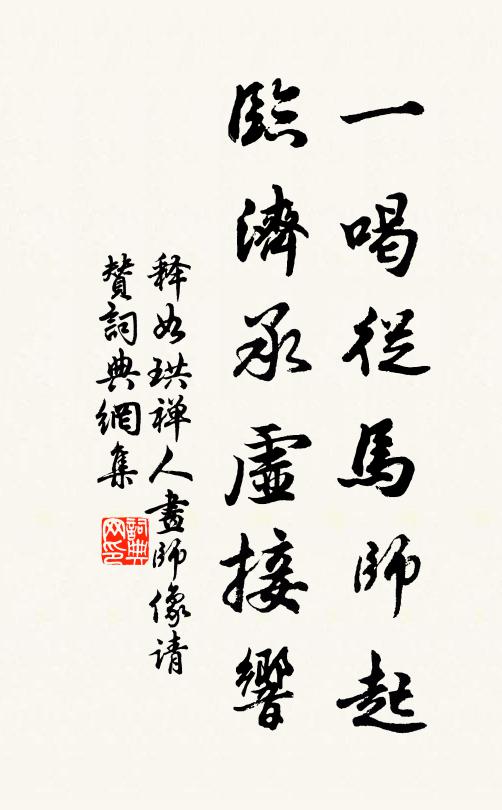 一喝從馬師起
臨濟承虛接響
释如珙禅人畫師像请
贊詞典網集
詞典网印